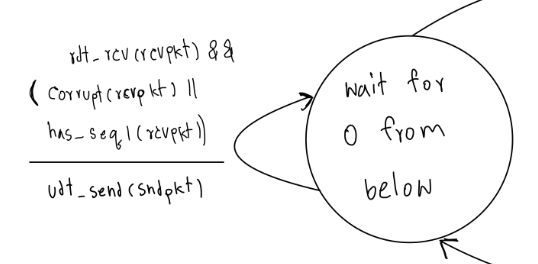 rdt_rcv(rcvpkt) &&
(corrupt(rcvpkt) ||
has_seq1(rcvpkt))
udt_send(sndpkt)
wait for
0 from
below